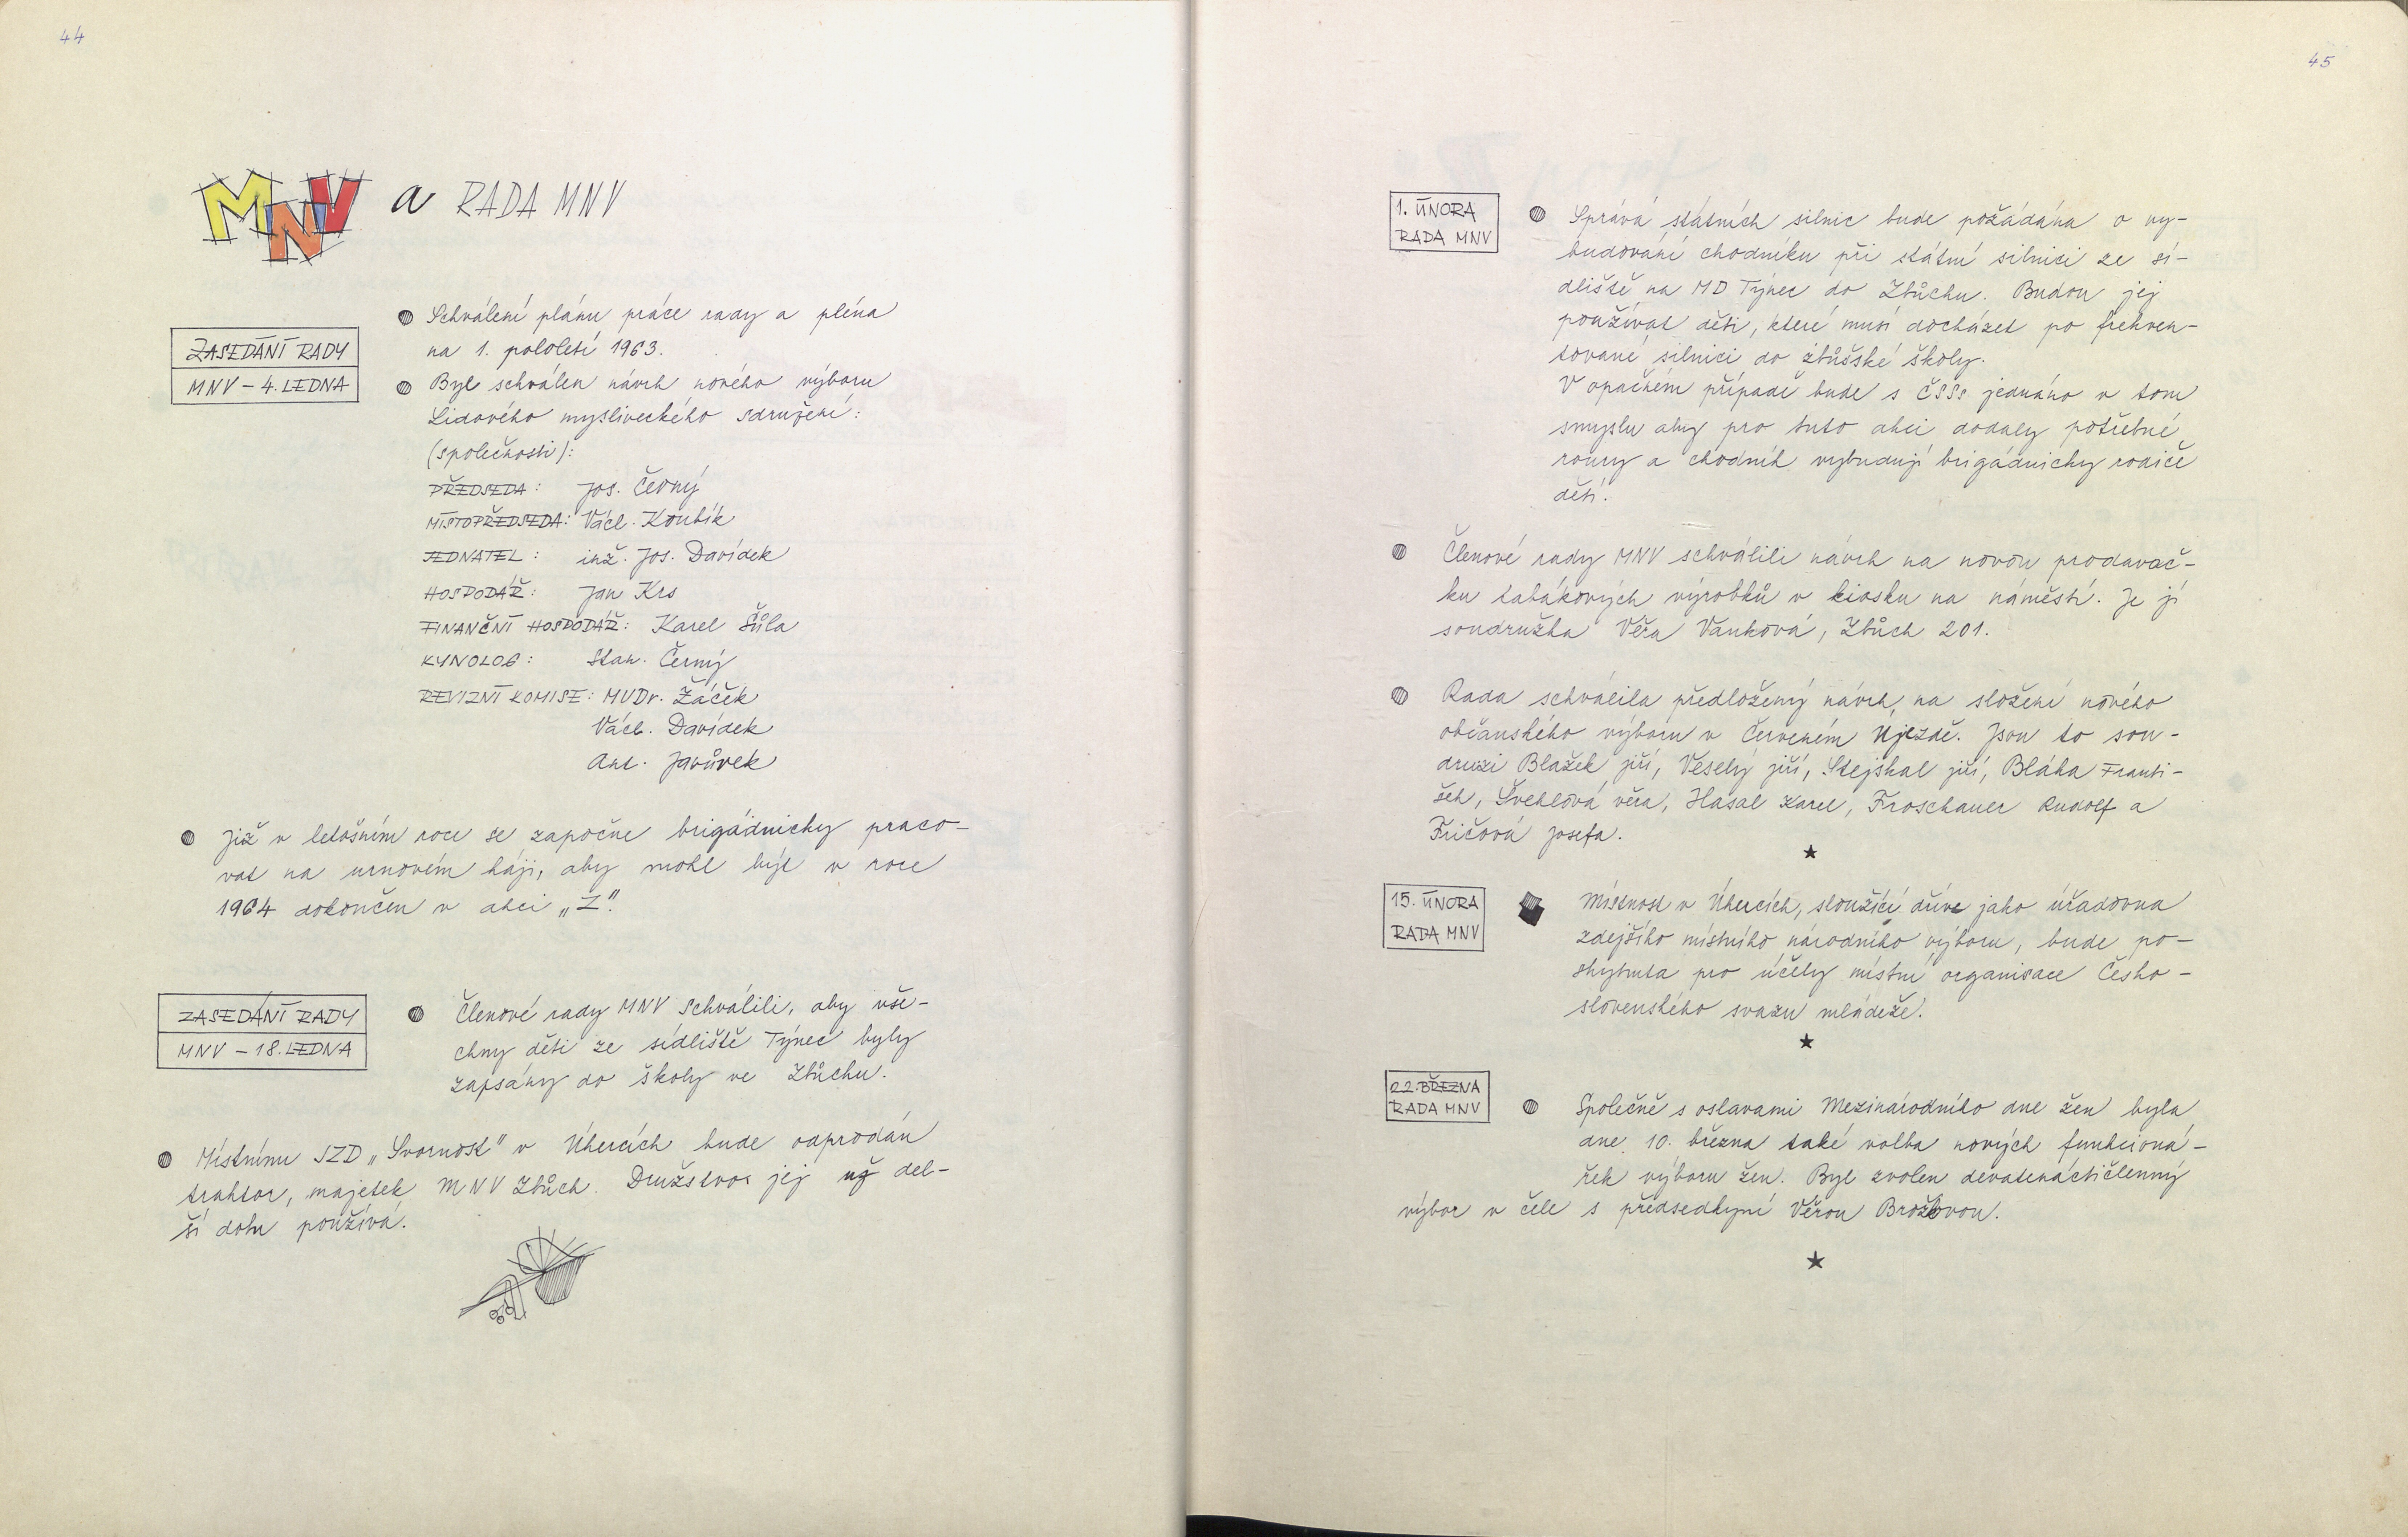 44
MNV a RADA MNV
ZASEDÁNÍ RADY
MNV – 4. LEDNA
Schválení plánu práce rady a pléna
na 1. pololetí 1963.
Byl schválen návrh nového výboru
Lidového mysliveckého sdružení:
(společnosti):
PŘEDSEDA: Jos. Černý
MÍSTOPŘEDSEDA: Václ. Koubík
JEDNATEL: inž. Jos. Davídek
HOSPODÁŘ: Jan Krs
FINANČNÍ HOSPODÁŘ: Karel Šůla
KYNOLOG: Stan. Černý
REVIZNÍ KOMISE: MUDr. Žáček
Václ. Davídek
Ant. Javůrek
Již v letošním roce se započne brigádnicky praco-
vat na urnovém háji, aby mohl být v roce
1964 dokončen v akci „Z".
ZASEDÁNÍ RADY
MNV – 18. LEDNA
Členové rady MNV schválili, aby vše-
chny děti ze sídliště Týnec byly
zapsány do školy ve Zbůchu.
Místnímu JZD „Svornost" v Úhercích bude odprodán
traktor, majetek MNV Zbůch. Družstvo jej už del-
ší dobu používá.
45
1. ÚNORA
RADA MNV
Správa státních silnic bude požádána o vy-
budování chodníku při státní silnici ze sí-
dliště na MD Týnec do Zbůchu. Budou jej
používat děti, které musí docházet po frekven-
tované silnici do zbůšské školy.
V opačném případě bude s ČSSs jednáno v tom
smyslu aby pro tuto akci dodaly potřebné
roury a chodník vybudují brigádnicky rodiče
dětí.
Členové rady MNV schválili návrh na novou prodavač-
ku tabákových výrobků v kiosku na náměstí. Je jí
soudružka Věra Vaňková, Zbůch 201.
Rada schválila předložený návrh, na složení nového
občanského výboru v Červeném Újezdě. Jsou to sou-
druzi Blažek Jiří, Veselý Jiří, Stejskal Jiří, Bláha Franti-
šek, Švehlová Věra, Hasal Karel, Froschauer Rudolf a
Fričová Josefa.
15. ÚNORA
RADA MNV
Místnost v Úhercích, sloužící dříve jako úřadovna
zdejšího místního národního výboru, bude po-
skytnuta pro účely místní organisace Česko-
slovenského svazu mládeže.
22. BŘEZNA
RADA MNV
Společně s oslavami Mezinárodního dne žen byla
dne 10. března také volba nových funkcioná-
řek výboru žen. Byl zvolen devatenáctičlenný
výbor v čele s předsedkyní Věrou Brožovou.